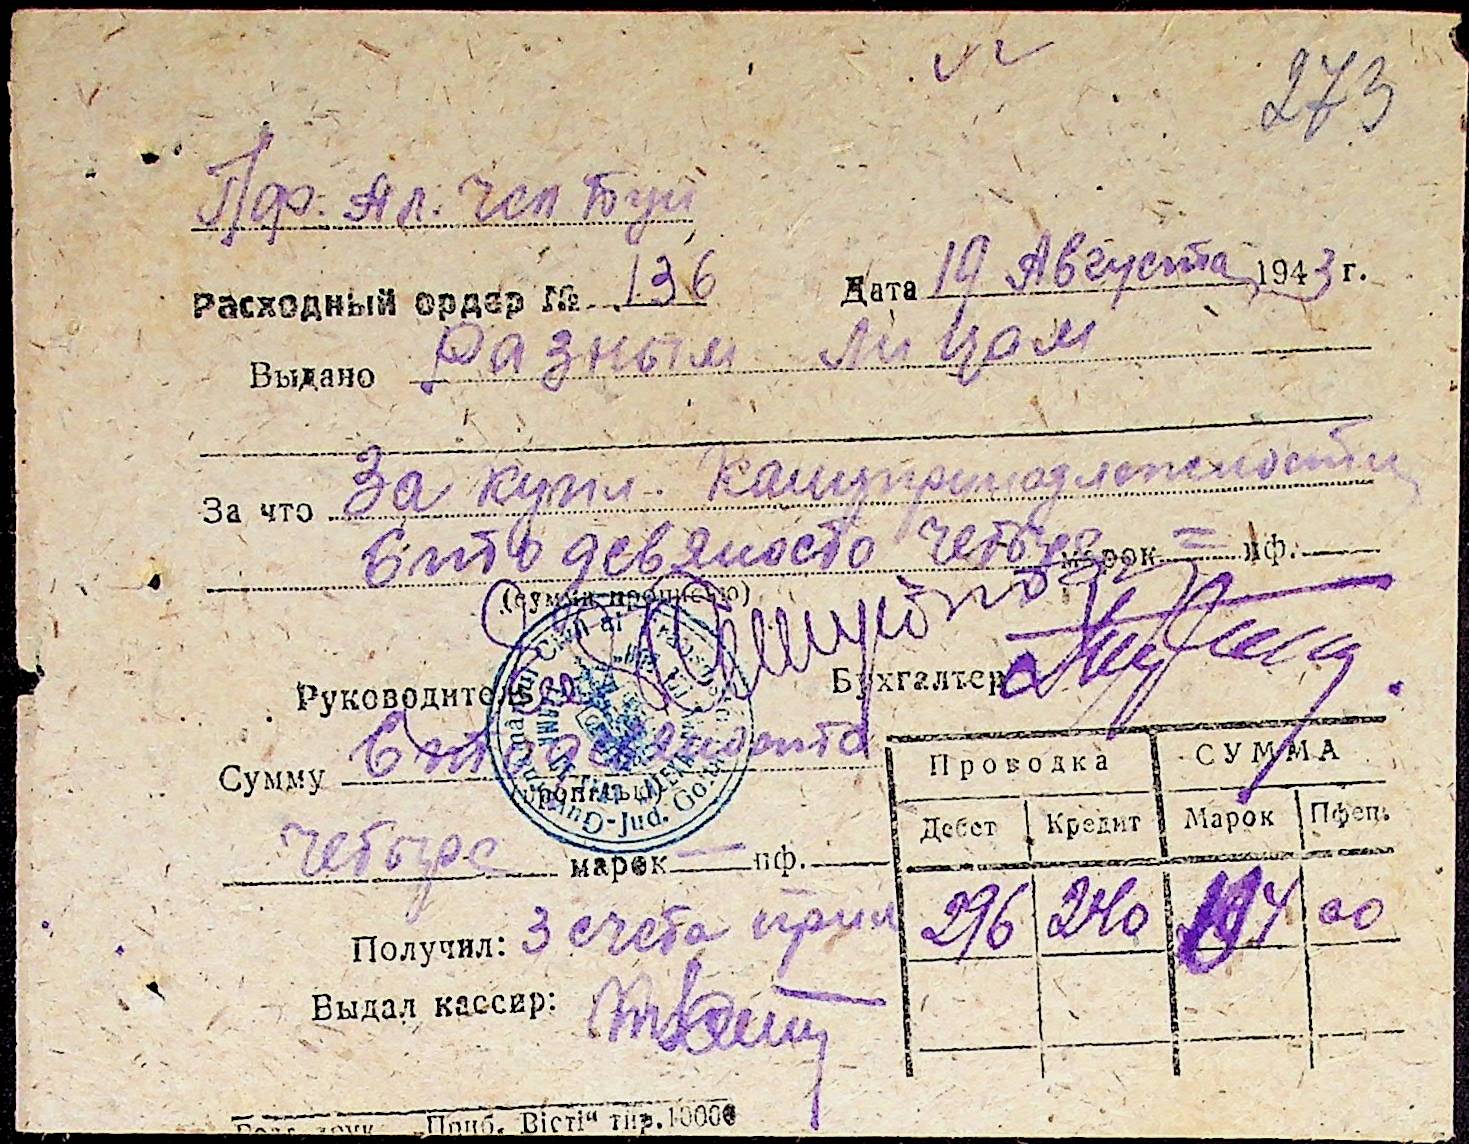 273
Пф. Ал. Чеп Буи
Расходный ордер № 136 Дата 19 Августа 1943 г.
Выдано Разным лицам
За что За купл. Канцпринадлежности
сто девяносто четыре марок = пф.
(сумма прописью)
Руководитель Бухгалтер
Сумму сто девяносто
(прописью)
четыре марок = пф.
Проводка СУММА
Дебет Кредит Марок Пфен.
296 240 194 00
Получил: 3 счета прил
Выдал кассир:
„Приб. Вісті“ тир. 10000